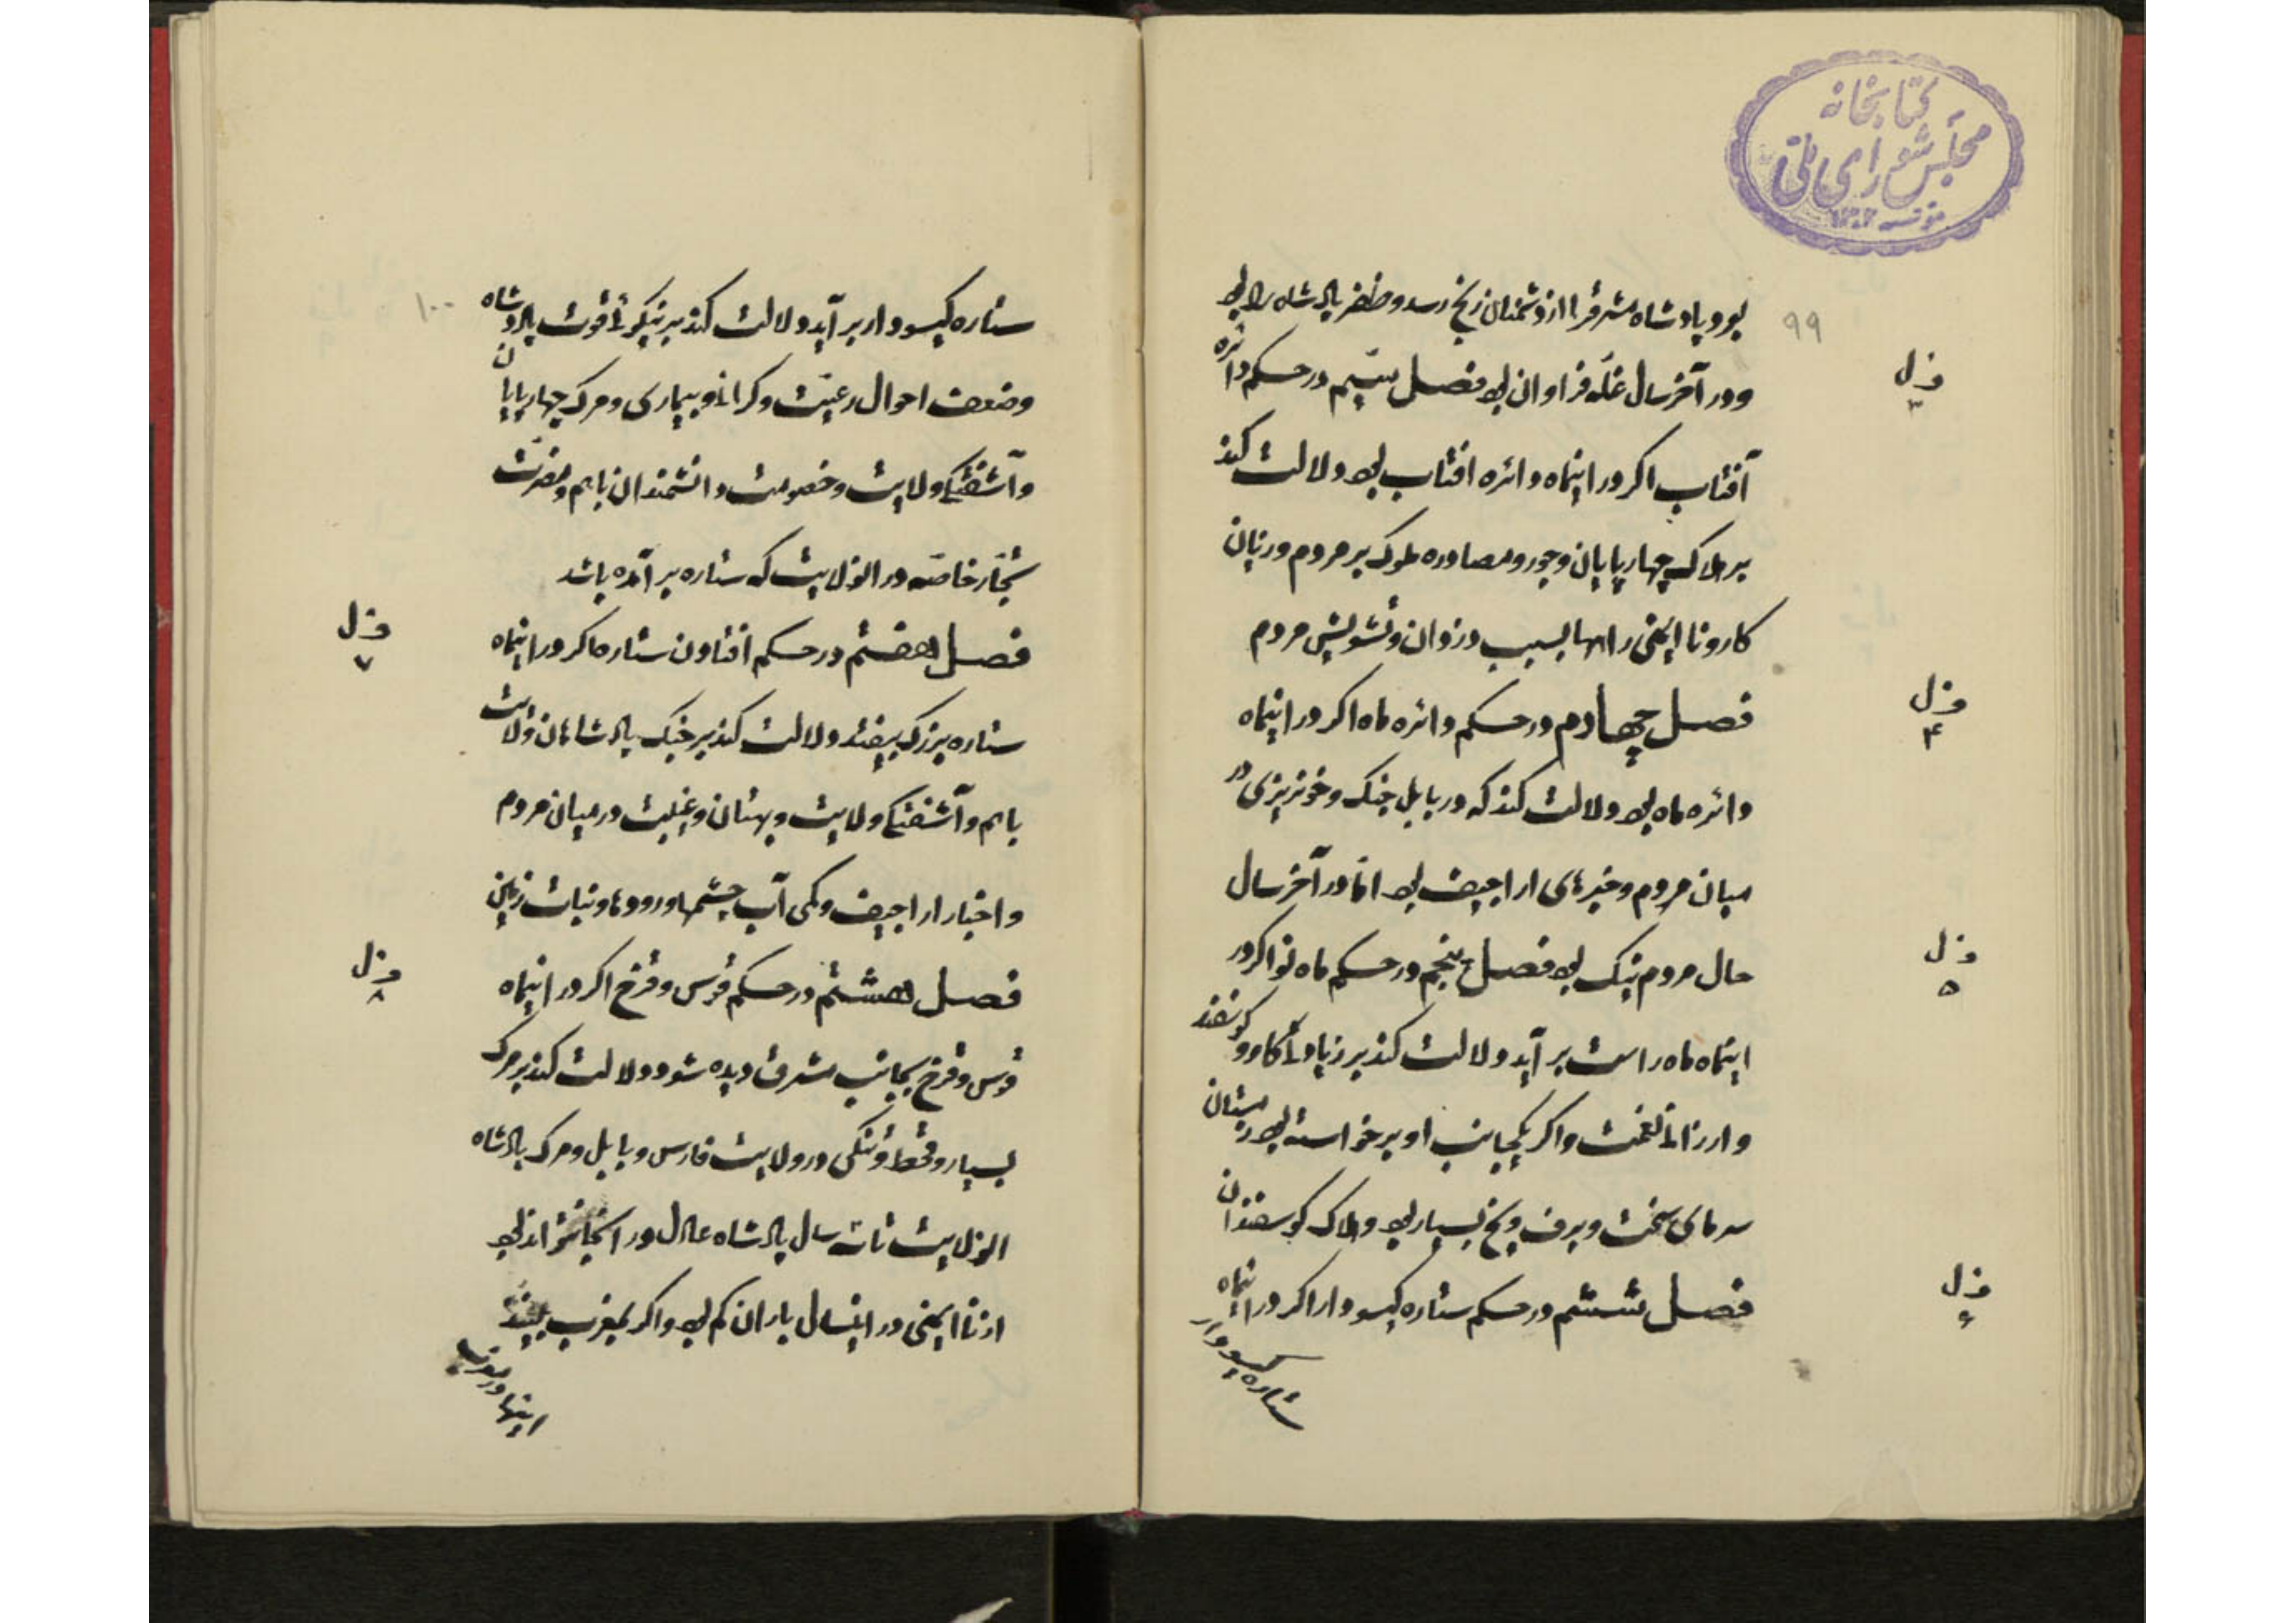 کتابخانه
مجلس شورای ملی
۹۹
بود و پادشاه مشرق را از دشمنان رنج رسد و ظفر پادشاه را بود
و در آخر سال غله فراوان بود فصل سیم در حکم دائره
ف‍ ل ۳
آفتاب اگر در اینماه دائره افتاب بود دلالت کند
بر هلاک چهارپایان و جور و مصادره ملوک بر مردم و زیان
کار و نا ایمنی راهها بسبب دزدان و تشویش مردم
فصل چهارم در حکم دائره ماه اگر در اینماه
ف‍ ل ۴
دائره ماه بود دلالت کند که در بابل جنک و خونریزی در
میان مردم و خبرهای اراجیف بود امّا در آخر سال
حال مردم نیک بود فصل پنجم در حکم ماه نو اگر در
ف‍ ل ۵
اینماه ماه راست بر آید دلالت کند بر زیادتی کاو و کوسفند
و ارزانی نعمت و اگر یکجانب او برخواسته بود زمستان
سرمای سخت و برف و یخ بسیار بود و هلاک کوسفندان
فصل ششم در حکم ستاره کیسودار اگر در اینماه
ف‍ ل ۶
ستاره کیسودار
۱۰۰
ستاره کیسودار بر آید دلالت کند بر نیکوئی قوت پادشاه
و ضعف احوال رعیّت و کرانی و بیماری و مرک چهارپایان
و آشفتگی ولایت و خصومت دانشمندان باهم و مضرّت
تجّار خاصّه در انولایت که ستاره بر آمده باشد
فصل هفتم در حکم افتادن ستارها اگر در اینماه
ف‍ ل ۷
ستاره بزرک بیفتد دلالت کند بر جنک پادشاهان ولایت
باهم و آشفتگی ولایت و بهتان و غیبت در میان مردم
و اخبار اراجیف و کمی آب چشمها و رودها و نبات زمین
فصل هشتم در حکم قوس و قزح اگر در اینماه
ف‍ ل ۸
قوس و قزح بجانب مشرق دیده شود دلالت کند بر مرک
بسیار و قحط و تنگی در ولایت فارس و بابل و مرک پادشاه
انولایت تا سه سال پادشاه عادل در انجا نتواند بود
از نا ایمنی در اینسال باران کم بود و اگر بمغرب بینند
اینها در مغرب